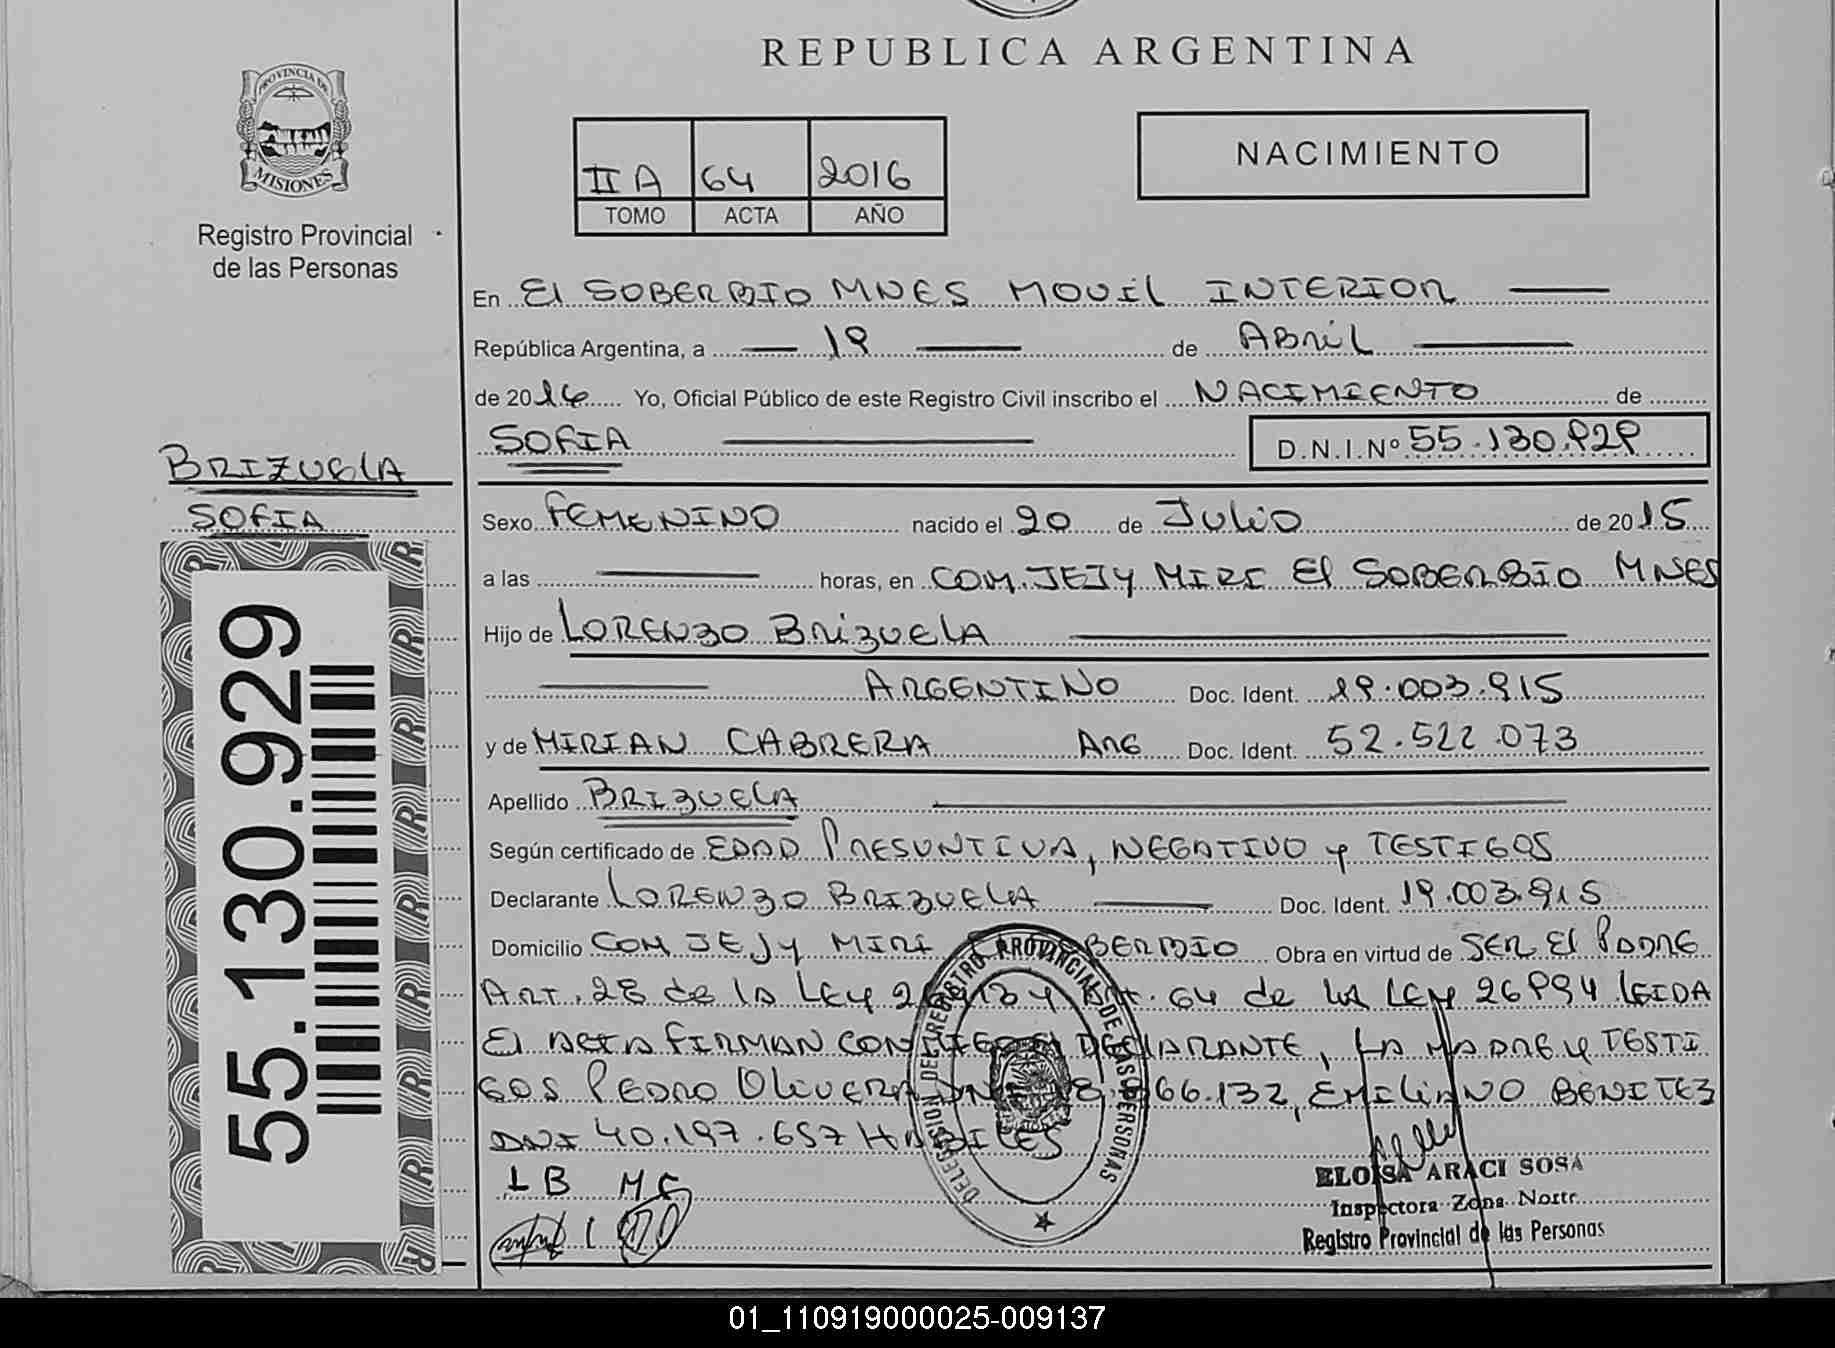 REPUBLICA ARGENTINA
PROVINCIA DE
MISIONES
Registro Provincial
de las Personas
II A 64 2016
TOMO ACTA AÑO
NACIMIENTO
En El SOBERBIO MNES MOVIL INTERIOR
República Argentina, a 19 de ABRIL
de 2016 Yo, Oficial Público de este Registro Civil inscribo el NACIMIENTO de
SOFIA D.N.I.Nº 55.130.929
BRIZUELA
SOFIA
55.130.929
Sexo FEMENINO nacido el 20 de JULIO de 2015
a las horas, en COM. JEJY MIRI El SOBERBIO MNES
Hijo de LORENZO BRIZUELA
ARGENTINO Doc. Ident. 19.003.915
y de MIRIAN CABRERA ARG Doc. Ident. 52.522.073
Apellido BRIZUELA
Según certificado de EDAD PRESUNTIVA, NEGATIVO y TESTIGOS
Declarante LORENZO BRIZUELA Doc. Ident. 19.003.915
Domicilio COM JEJY MIRI BERBIO Obra en virtud de SER El PADRE
ART. 28 de la LEY y 64 de la LEY 26994 LEIDA
El ACTA FIRMAN DECLARANTE, LA MADRE y TESTI
GOS PEDRO OLIVERA 66.132, EMILIANO BENITEZ
DNI 40.197.657 HABILES
LB MC
DELEGACION DEL REGISTRO PROVINCIAL DE LAS PERSONAS
ELOISA ARACI SOSA
Inspectora Zona Norte
Registro Provincial de las Personas
01_110919000025-009137